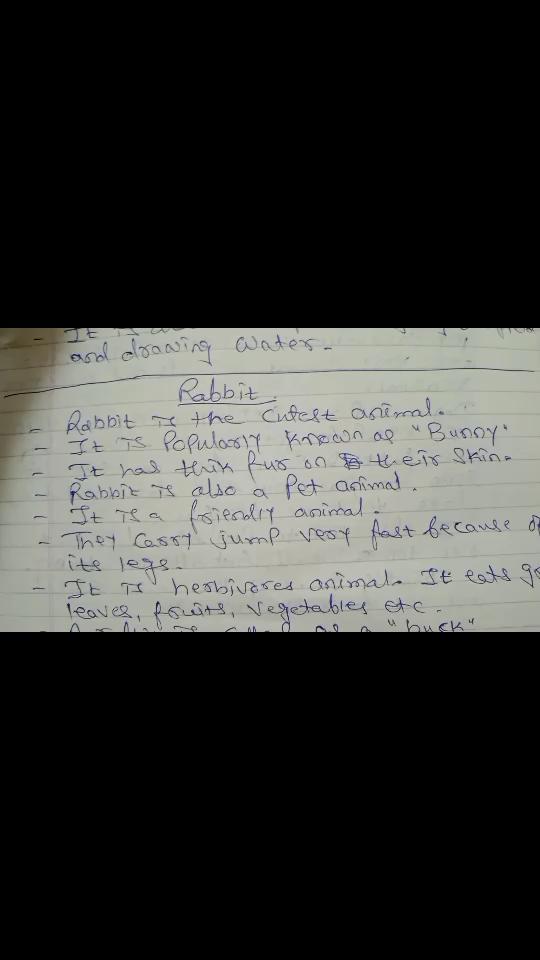 - It is
and drawing water.
Rabbit
- Rabbit is the cutest animal.
- It is Popularly known as "Bunny"
- It has thik fur on their skin.
- Rabbit is also a Pet animal.
- It is a friendly animal.
- They carry jump very fast because of
its legs.
- It is herbivores animal. It eats
leaves, fruits, vegetables etc.
as a "buck"